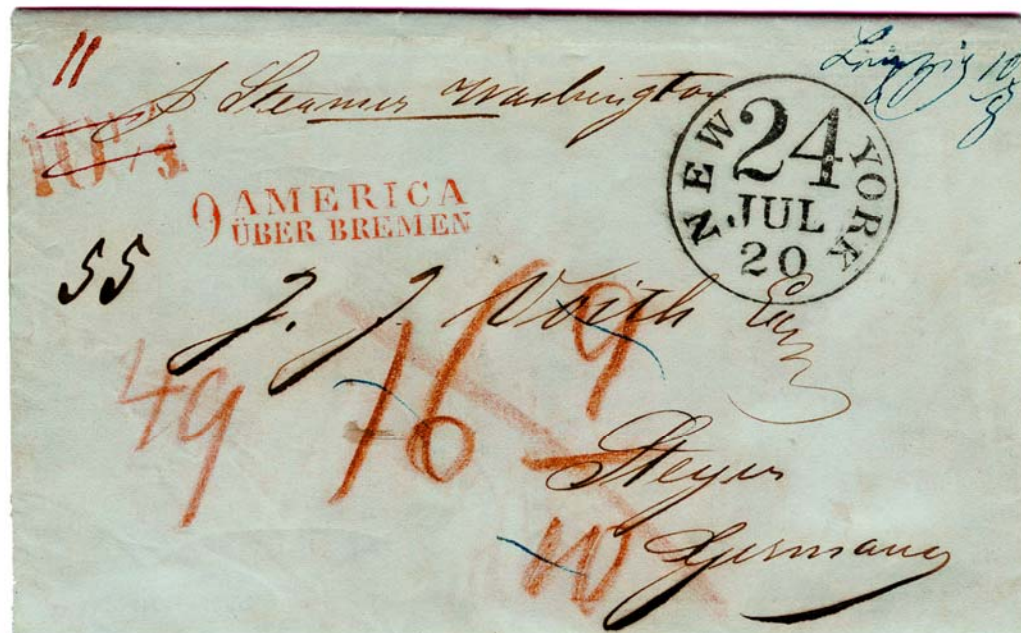 11
p Steamer Washington
Leipzig 10/8
NEW YORK
24
JUL
20
9 AMERICA
ÜBER BREMEN
55
J. J. Voith Esq
49
16 9
Steyer
Germany